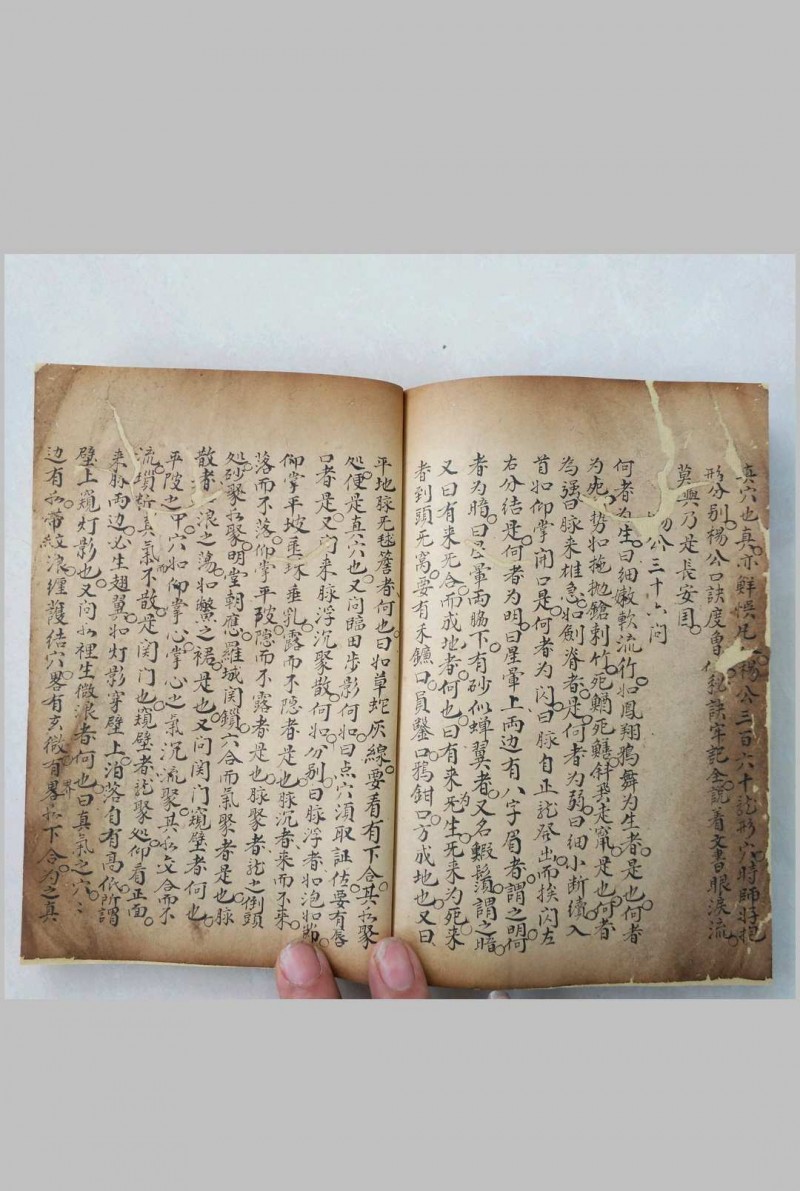 真穴也真亦鮮悞兇楊公三百六十龍形穴時師将把
形分别楊公口訣度曾秘訣牢記念説着文書眼淚流
莫與乃是長安国
公三十六问
何者为生曰细嫩軟流行如鳳翔鴉舞为生者是也何者
为死势如拖抛鎗刺竹死鰍死鱔斜飛走竄是也何者
為强曰脉来雄急如劍脊者是何者为弱曰细小断续入
首如仰掌开口是何者为闪曰脉自正龍發出而挨闪左
右分结是何者为明曰星暈上两边有八字眉者謂之明何
者为暗曰暈两脇下有砂似蝉翼者又名蝦鬚謂之暗
又曰有来死合而成地者何也曰有来死为生死来为死来
者到頭死窩要有禾鐮口員鏊口鴉鉗口方成地也又曰
平地脉无毬簷者何也曰如草蛇灰線要看有下合其水聚
処便是真穴也又问臨田步影何如曰点穴須取証佐要有唇
口者是又问来脉浮沉聚散何如分别曰脉浮者如泡如節
仰掌平坡垂珠垂乳露而不隐者是也脉沉者来而不来
落而不落仰掌平陂隐而不露者是也脉聚者龍之倒頭
処砂聚水聚明堂朝應羅城関鎖六合而氣聚者是也脉
散者浪之蕩如鱉之裙是也又问関门窺壁者何也
平陂之甲穴如仰掌心掌心之氣沉流聚其水交合而不
流瑣斷真氣不散是関门也窺壁者龍聚処仰看正面
来脉两边必生翅翼如灯影穿壁上泊落自有高低所謂
壁上窺灯影也又问水裡生微浪者何也曰真氣之穴
边有水帶紋浪纏護结穴畧有玄微有畧水下合为之真
界